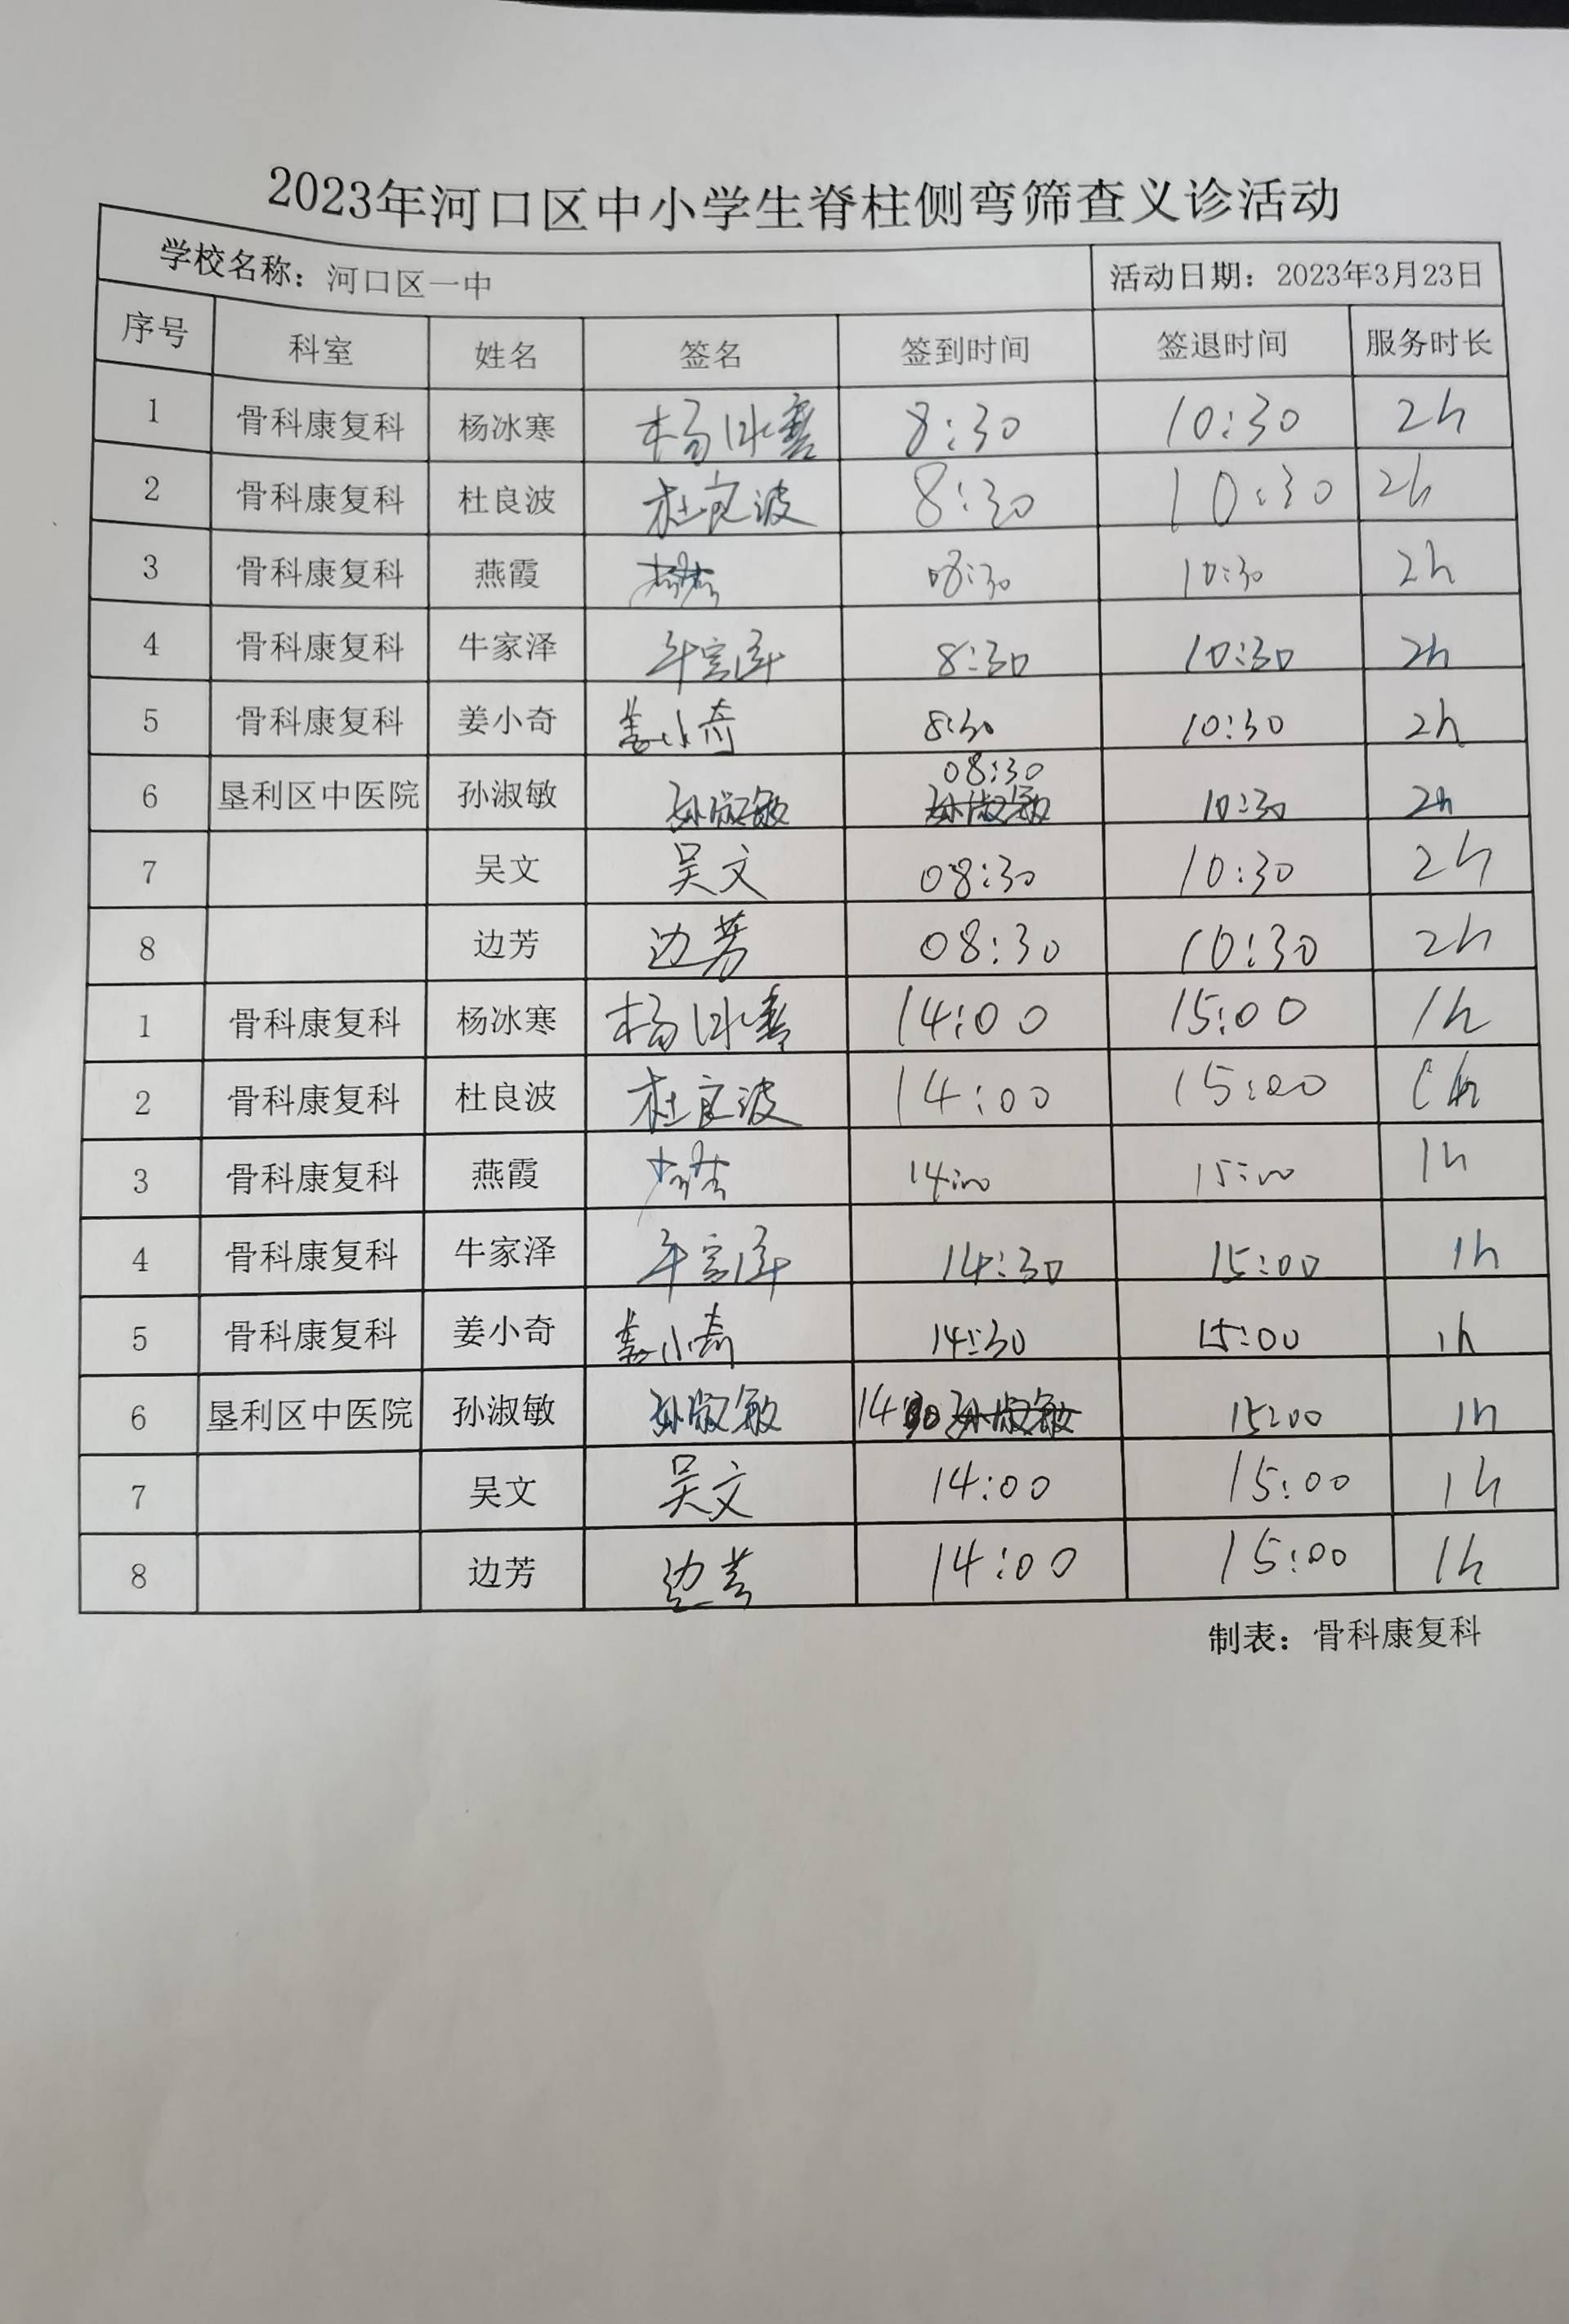 2023年河口区中小学生脊柱侧弯筛查义诊活动
学校名称：河口区一中 活动日期：2023年3月23日
序号 科室 姓名 签名 签到时间 签退时间 服务时长
1 骨科康复科 杨冰寒 杨冰寒 8:30 10:30 2h
2 骨科康复科 杜良波 杜良波 8:30 10:30 2h
3 骨科康复科 燕霞 08:30 10:30 2h
4 骨科康复科 牛家泽 牛家泽 8:30 10:30 2h
5 骨科康复科 姜小奇 姜小奇 8:30 10:30 2h
6 垦利区中医院 孙淑敏 孙淑敏 08:30 孙淑敏 10:30 2h
7 吴文 吴文 08:30 10:30 2h
8 边芳 边芳 08:30 10:30 2h
1 骨科康复科 杨冰寒 杨冰寒 14:00 15:00 1h
2 骨科康复科 杜良波 杜良波 14:00 15:00 1h
3 骨科康复科 燕霞 14:00 15:00 1h
4 骨科康复科 牛家泽 牛家泽 14:30 15:00 1h
5 骨科康复科 姜小奇 姜小奇 14:30 15:00 1h
6 垦利区中医院 孙淑敏 孙淑敏 孙淑敏 15:00 1h
7 吴文 吴文 14:00 15:00 1h
8 边芳 边芳 14:00 15:00 1h
制表：骨科康复科